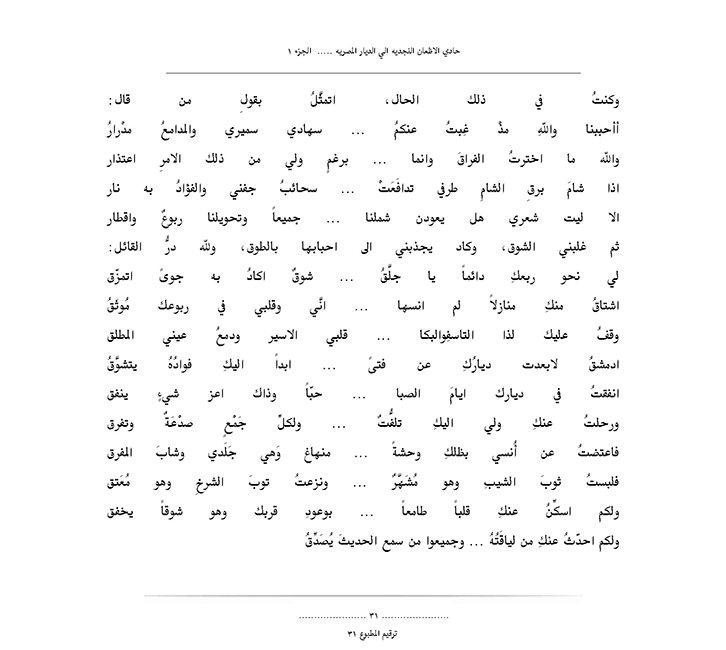 حادي الاظعان النجديه الي الديار المصريه ..... الجزء ١
وكنتُ في ذلك الحال، اتمثَّلُ بقولِ من قال:
أأحببنا واللهِ مذْ غِبتُ عنكمُ ... سهادي سميري والمدامعُ مدْرارُ
والله ما اخترتُ الفراقَ وانما ... برغمٍ ولي من ذلك الامرِ اعتذار
اذا شامَ برقِ الشامِ طرفي تدافَعَتْ ... سحائبُ جفني والفؤادُ به نار
الا ليت شعري هل يعودن شملنا ... جميعاً وتحويلنا ربوعٌ واقطار
ثم غلبني الشوق، وكاد يجذبني الى احبابها بالطوق، ولله درُّ القائل:
لي نحو ربعكِ دائماً يا جلَّقُ ... شوقٌ اكادُ به جوىً اتمزّق
اشتاقُ منكِ منازلاً لم انسها ... انَّي وقلبي في ربوعك مُوثَقُ
وقفُ عليك لذا التاسفوالبكا ... قلبي الاسير ودمعُ عيني المطلق
ادمشقُ لابعدت ديارُكِ عن فتىً ... ابداً اليكِ فوادُهُ يتشوَّقُ
انفقتُ في ديارك ايامَ الصبا ... حبّاً وذاك اعز شيءٍ ينفق
ورحلتُ عنكِ ولي اليكِ تلفُّتٌ ... ولكلِّ جَمْعٍ صدْعَةٌ وتفرق
فاعتضتُ عن أُنسي بظلكِ وحشةً ... منهاغ وَهي جَلَدي وشابَ المفرق
فلبستُ ثوبَ الشيبِ وهو مُشَهَّرٌ ... ونزعتُ توبَ الشرخِ وهو مُعَتق
ولكم اسكِّنُ عنكِ قلباً طامعاً ... بوعودِ قربك وهو شوقاً يخفق
ولكم احدّثُ عنكِ من لياقَتُهُ ... وجميعوا من سمع الحديثَ يُصَدِّقُ
...................... ٣١ ......................
ترقيم المطبوع ٣١